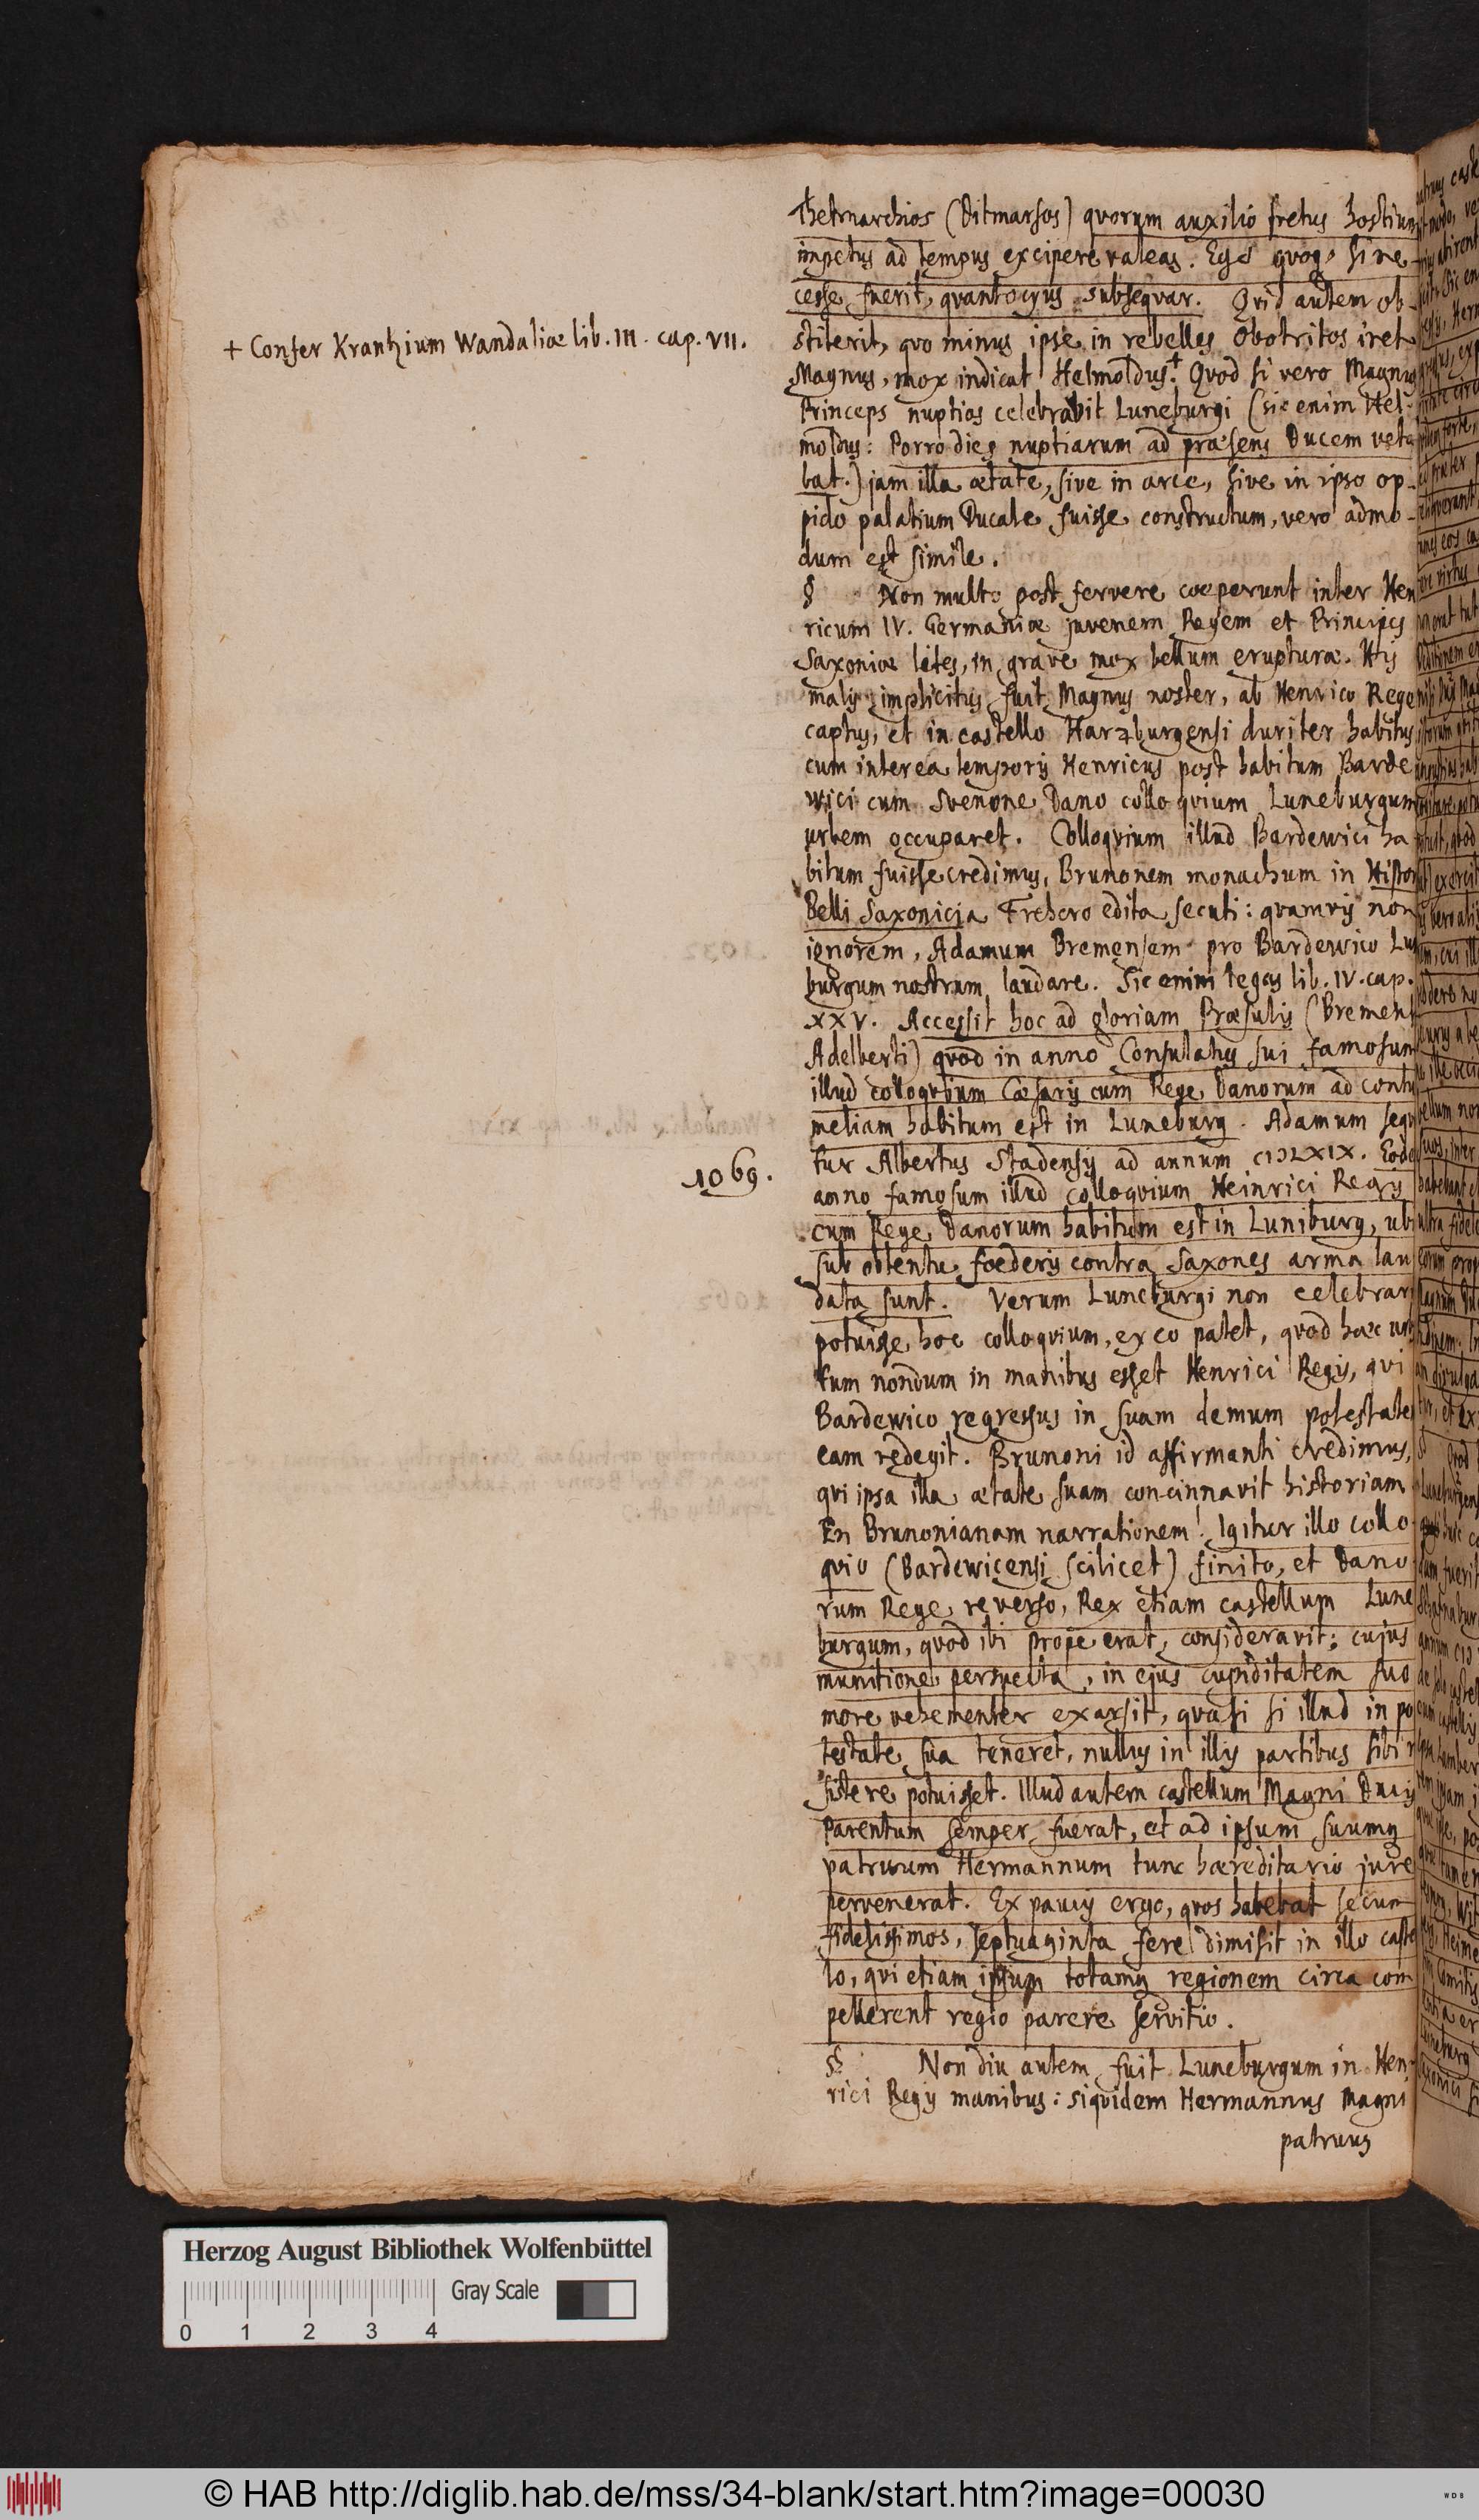 Thetmarchios (Ditmarsos) quorum auxilio fretus hostium
impetus ad tempus excipere valeas. Ego quoq, si ne-
cesse fuerit, quantocyus subsequar. Quid autem ob-
stiterit, quo minus ipse in rebelles Obotritos iret
+ Confer Krantzium Wandaliæ lib. III. cap. VII.
Magnus, mox indicat Helmoldus.+ Quod si vero Magnus
Princeps nuptias celebrabit Luneburgi (sic enim Hel-
moldus: Porro dies nuptiarum ad præsens Ducem veta
bat.) jam illa ætate, sive in arce, sive in ipso op-
pido palatium Ducale fuisse constructum, vero admo-
dum est simile.
§ Non multo post fervere coeperunt inter Hen
ricum IV. Germaniæ juvenem Regem et Principes
Saxoniæ lites, in grave mox bellum erupturæ. His
malis implicitus fuit Magnus noster, ab Henrico Rege
captus, et in castello Harzburgensi duriter habitus
cum interea temporis Henricus post habitum Barde
wici cum Svenone Dano colloquium Luneburgum
urbem occuparet. Colloquium illud Bardewici ha
bitum fuisse credimus, Brunonem monachum in Histor
Belli Saxonici a Frehero edita secuti: quamvis non
ignorem, Adamum Bremensem pro Bardewico Lu
burgum nostrum laudare. Sic enim legas lib. IV. cap.
XXV. Accessit hoc ad gloriam Præsulis (Bremens
Adelberti) quod in anno Consulatus sui famosum
illud colloquium Cæsaris cum Rege Danorum ad contu
meliam habitum est in Luneburg. Adamum sequ
tur Albertus Stadensis ad annum CIↃLXIX. Eode
1069.
anno famosum illud colloquium Heinrici Regis
cum Rege Danorum habitum est in Luniburg, ubi
sub obtentu foederis contra Saxones arma lau
data sunt. Verum Luneburgi non celebrari
potuisse hoc colloquium, ex eo patet, quod hæc urbs
tum nondum in manibus esset Henrici Regis, qui
Bardewico regressus in suam demum potestate
eam redegit. Brunoni id affirmanti credimus,
qui ipsa illa ætate suam concinnavit historiam
En Brunonianam narrationem! Igitur illo collo
quio (Bardewicensi scilicet) finito, et Dano
rum Rege reverso, Rex etiam castellum Lune
burgum, quod ibi prope erat, consideravit; cujus
munitione perspecta, in ejus cupiditatem suo
more vehementer exarsit, quasi si illud in po
testate sua teneret, nullus in illis partibus sibi r
sistere potuisset. Illud autem castellum Magni Ducis
parentum semper fuerat, et ad ipsum suumq
patruum Hermannum tunc hæreditario jure
pervenerat. Ex paucis ergo, quos habebat secum
fidelissimos, septuaginta fere dimisit in illo caste
lo, qui etiam ipsum totamq regionem circa com
pellerent regio parere servitio.
§§ Non diu autem fuit Luneburgum in Hen-
rici Regis manibus: siquidem Hermannus Magni
patruus
Herzog August Bibliothek Wolfenbüttel
Gray Scale
0 1 2 3 4
© HAB http://diglib.hab.de/mss/34-blank/start.htm?image=00030
WDB